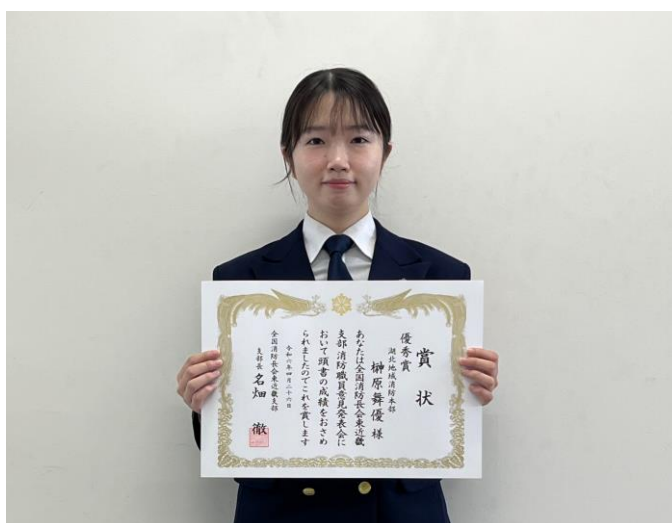 賞状
優秀賞
湖北地域消防本部
榊原舞優 様
あなたは全国消防長会東近畿
支部消防職員意見発表会に
おいて頭書の成績をおさめ
られましたのでこれを賞します
令和六年四月二十六日
全国消防長会東近畿支部
支部長 名畑 徹